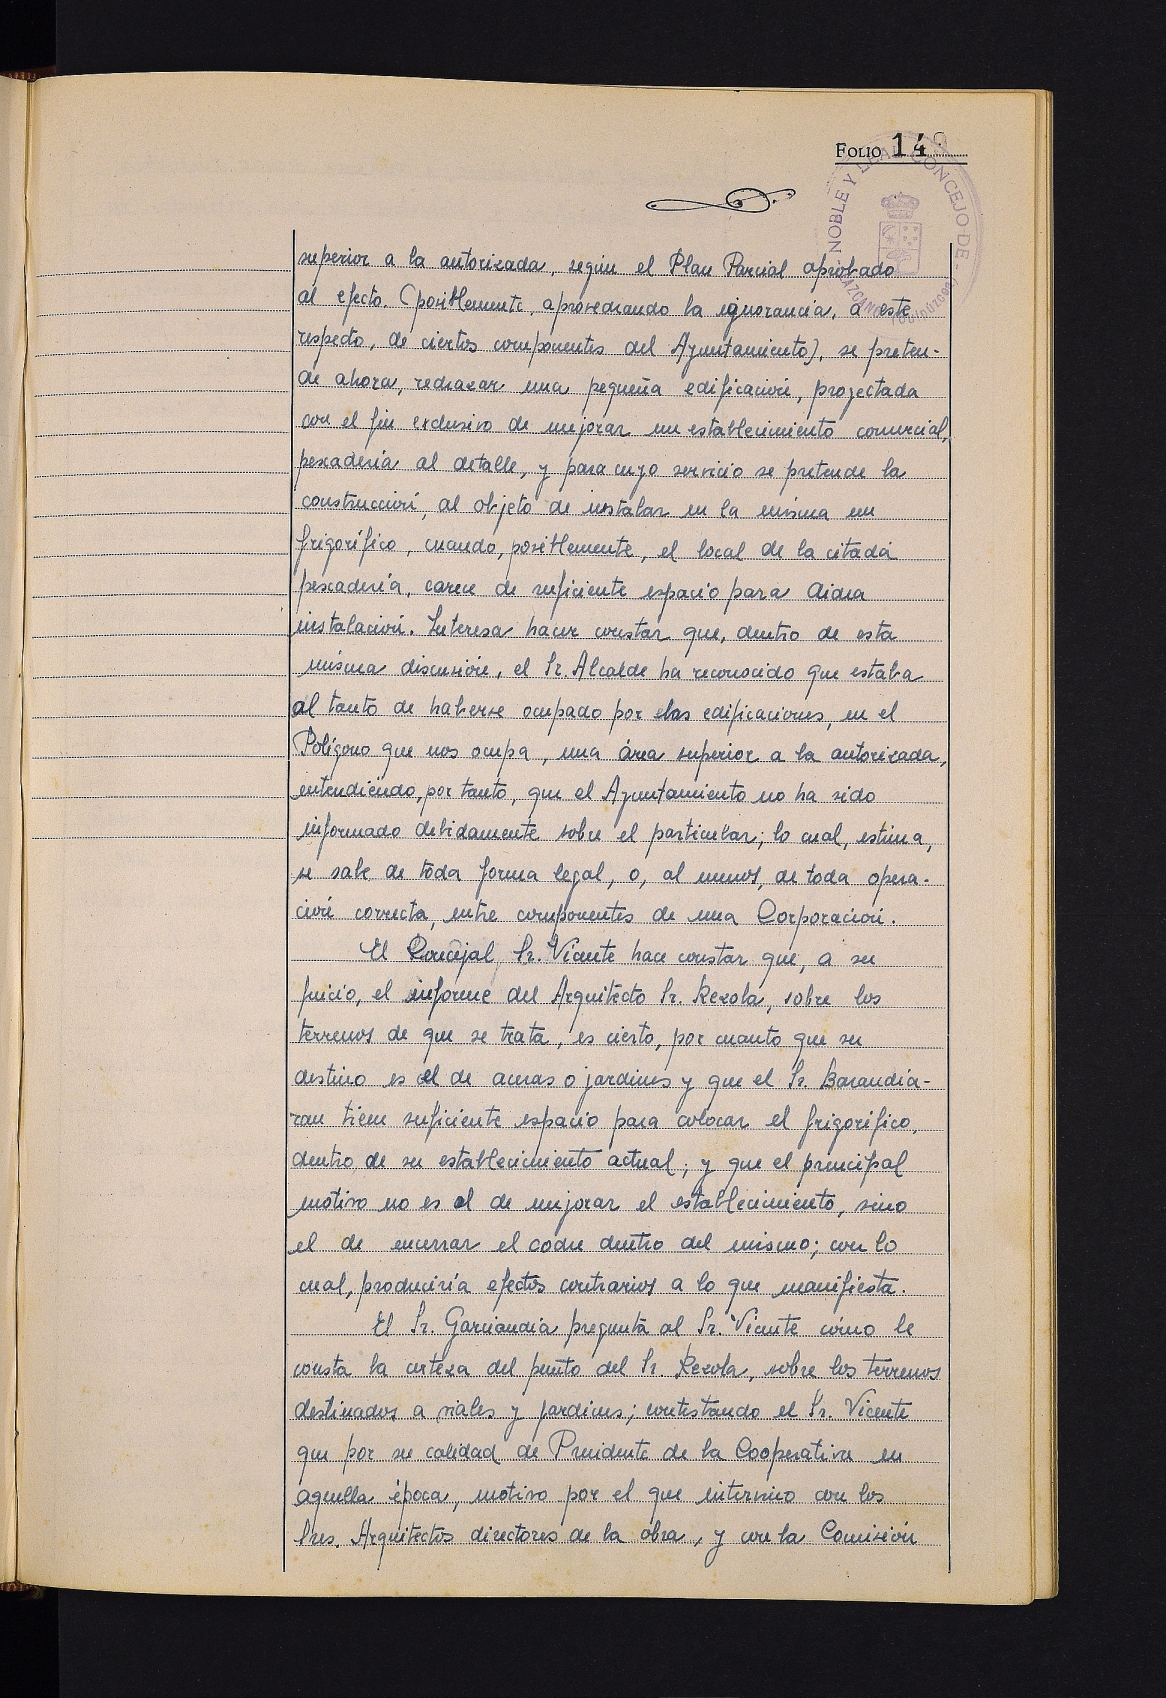 FOLIO 149
NOBLE Y LEAL CONCEJO DE
LAZCANO (GUIPÚZCOA)
superior a la autorizada, según el Plan Parcial aprobado
al efecto. (posiblemente, aprovechando la ignorancia, a este
respecto, de ciertos componentes del Ayuntamiento), se preten-
de ahora, rechazar una pequeña edificación, proyectada
con el fin exclusivo de mejorar un establecimiento comercial,
pescadería al detalle, y para cuyo servicio se pretende la
construcción, al objeto de instalar en la misma un
frigorífico, cuando, posiblemente, el local de la citada
pescadería, carece de suficiente espacio para dicha
instalación. Interesa hacer constar que, dentro de esta
misma discusión, el Sr. Alcalde ha reconocido que estaba
al tanto de haberse ocupado por las edificaciones, en el
Polígono que nos ocupa, una área superior a la autorizada,
entendiendo, por tanto, que el Ayuntamiento no ha sido
informado debidamente sobre el particular; lo cual, estima,
se sale de toda forma legal, o, al menos, de toda opera-
ción correcta, entre componentes de una Corporación.
El Concejal Sr. Vicente hace constar que, a su
juicio, el informe del Arquitecto Sr. Rezola, sobre los
terrenos de que se trata, es cierto, por cuanto que su
destino es el de aceras o jardines y que el Sr. Barandia-
ran tiene suficiente espacio para colocar el frigorífico,
dentro de su establecimiento actual; y que el principal
motivo no es el de mejorar el establecimiento, sino
el de encerrar el coche dentro del mismo; con lo
cual, produciría efectos contrarios a lo que manifiesta.
El Sr. Garciandia pregunta al Sr. Vicente cómo le
consta la certeza del punto del Sr. Rezola, sobre los terrenos
destinados a viales y jardines; contestando el Sr. Vicente
que por su calidad de Presidente de la Cooperativa en
aquella época, motivo por el que intervino con los
Sres. Arquitectos directores de la obra, y con la Comisión